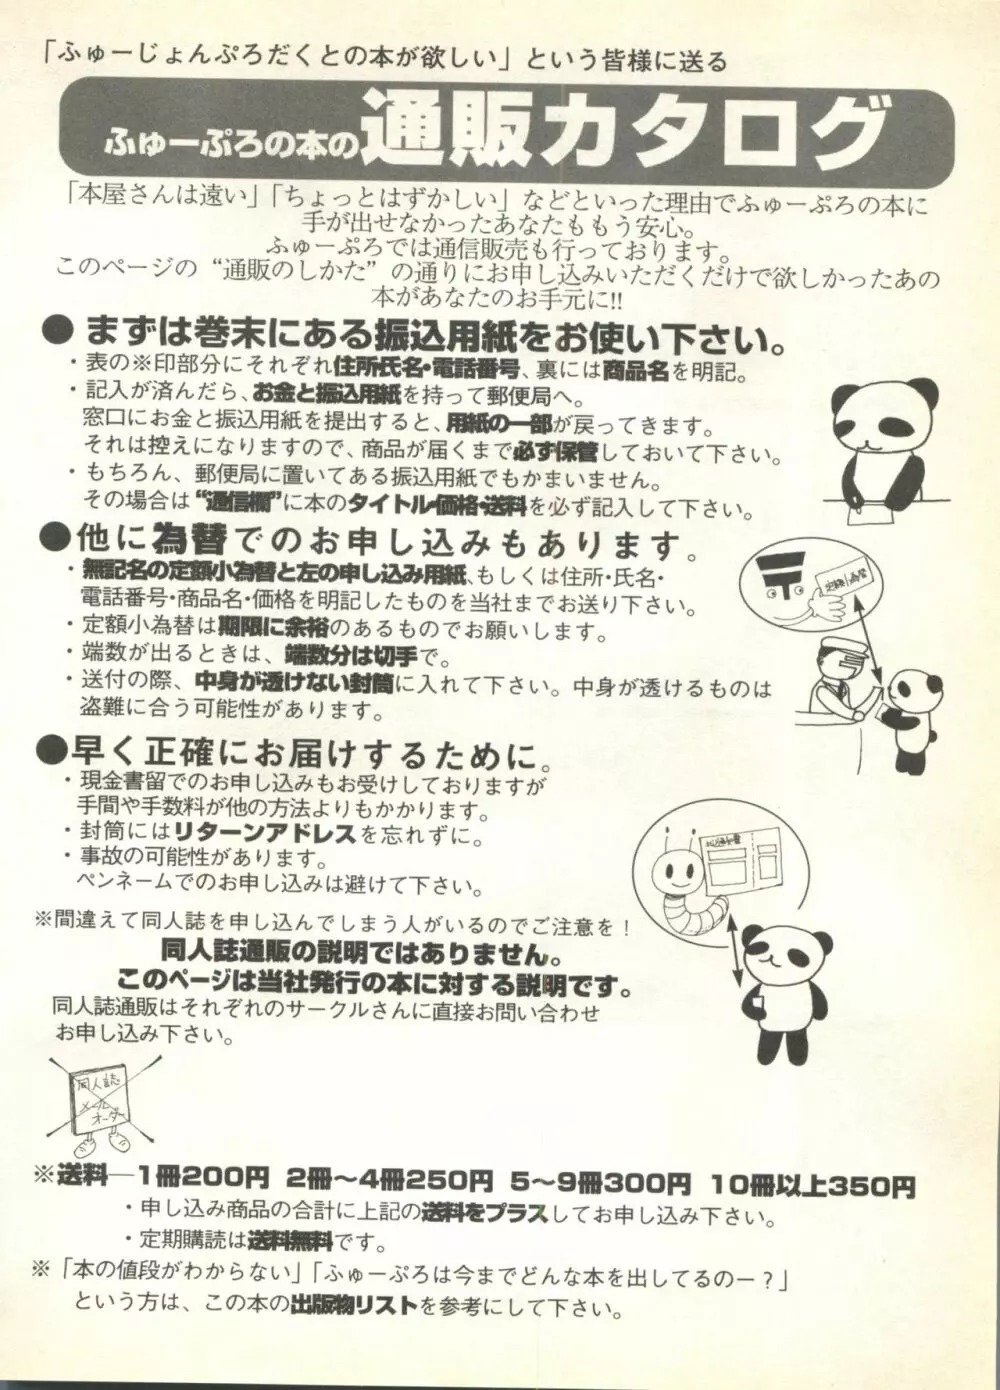 「ふゅーじょんぷろだくとの本が欲しい」という皆様に送る
ふゅーぷろの本の通販カタログ
「本屋さんは遠い」「ちょっとはずかしい」などといった理由でふゅーぷろの本に
手が出せなかったあなたももう安心。
ふゅーぷろでは通信販売も行っております。
このページの“通販のしかた”の通りにお申し込みいただくだけで欲しかったあの
本があなたのお手元に!!
●まずは巻末にある振込用紙をお使い下さい。
・表の※印部分にそれぞれ住所氏名・電話番号、裏には商品名を明記。
・記入が済んだら、お金と振込用紙を持って郵便局へ。
窓口にお金と振込用紙を提出すると、用紙の一部が戻ってきます。
それは控えになりますので、商品が届くまで必ず保管しておいて下さい。
・もちろん、郵便局に置いてある振込用紙でもかまいません。
その場合は“通信欄”に本のタイトル・価格・送料を必ず記入して下さい。
●他に為替でのお申し込みもあります。
・無記名の定額小為替と左の申し込み用紙、もしくは住所・氏名・
電話番号・商品名・価格を明記したものを当社までお送り下さい。
・定額小為替は期限に余裕のあるものでお願いします。
・端数が出るときは、端数分は切手で。
・送付の際、中身が透けない封筒に入れて下さい。中身が透けるものは
盗難に合う可能性があります。
定額小為替
●早く正確にお届けするために。
・現金書留でのお申し込みもお受けしておりますが
手間や手数料が他の方法よりもかかります。
・封筒にはリターンアドレスを忘れずに。
・事故の可能性があります。
ペンネームでのお申し込みは避けて下さい。
※間違えて同人誌を申し込んでしまう人がいるのでご注意を！
同人誌通販の説明ではありません。
このページは当社発行の本に対する説明です。
同人誌通販はそれぞれのサークルさんに直接お問い合わせ
お申し込み下さい。
同人誌
メール
オーダー
※送料―1冊200円　2冊～4冊250円　5～9冊300円　10冊以上350円
・申し込み商品の合計に上記の送料をプラスしてお申し込み下さい。
・定期購読は送料無料です。
※「本の値段がわからない」「ふゅーぷろは今までどんな本を出してるのー？」
という方は、この本の出版物リストを参考にして下さい。